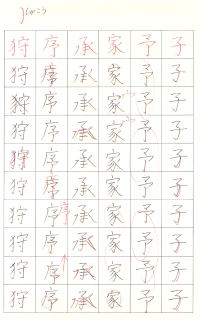 狩序承家予子
狩序承家予子
狩序承家予子
狩序承家予子
狩序承家予子
狩序承家予子
狩序承家予子
狩序承家予子
狩序承家予子
狩序承家予子